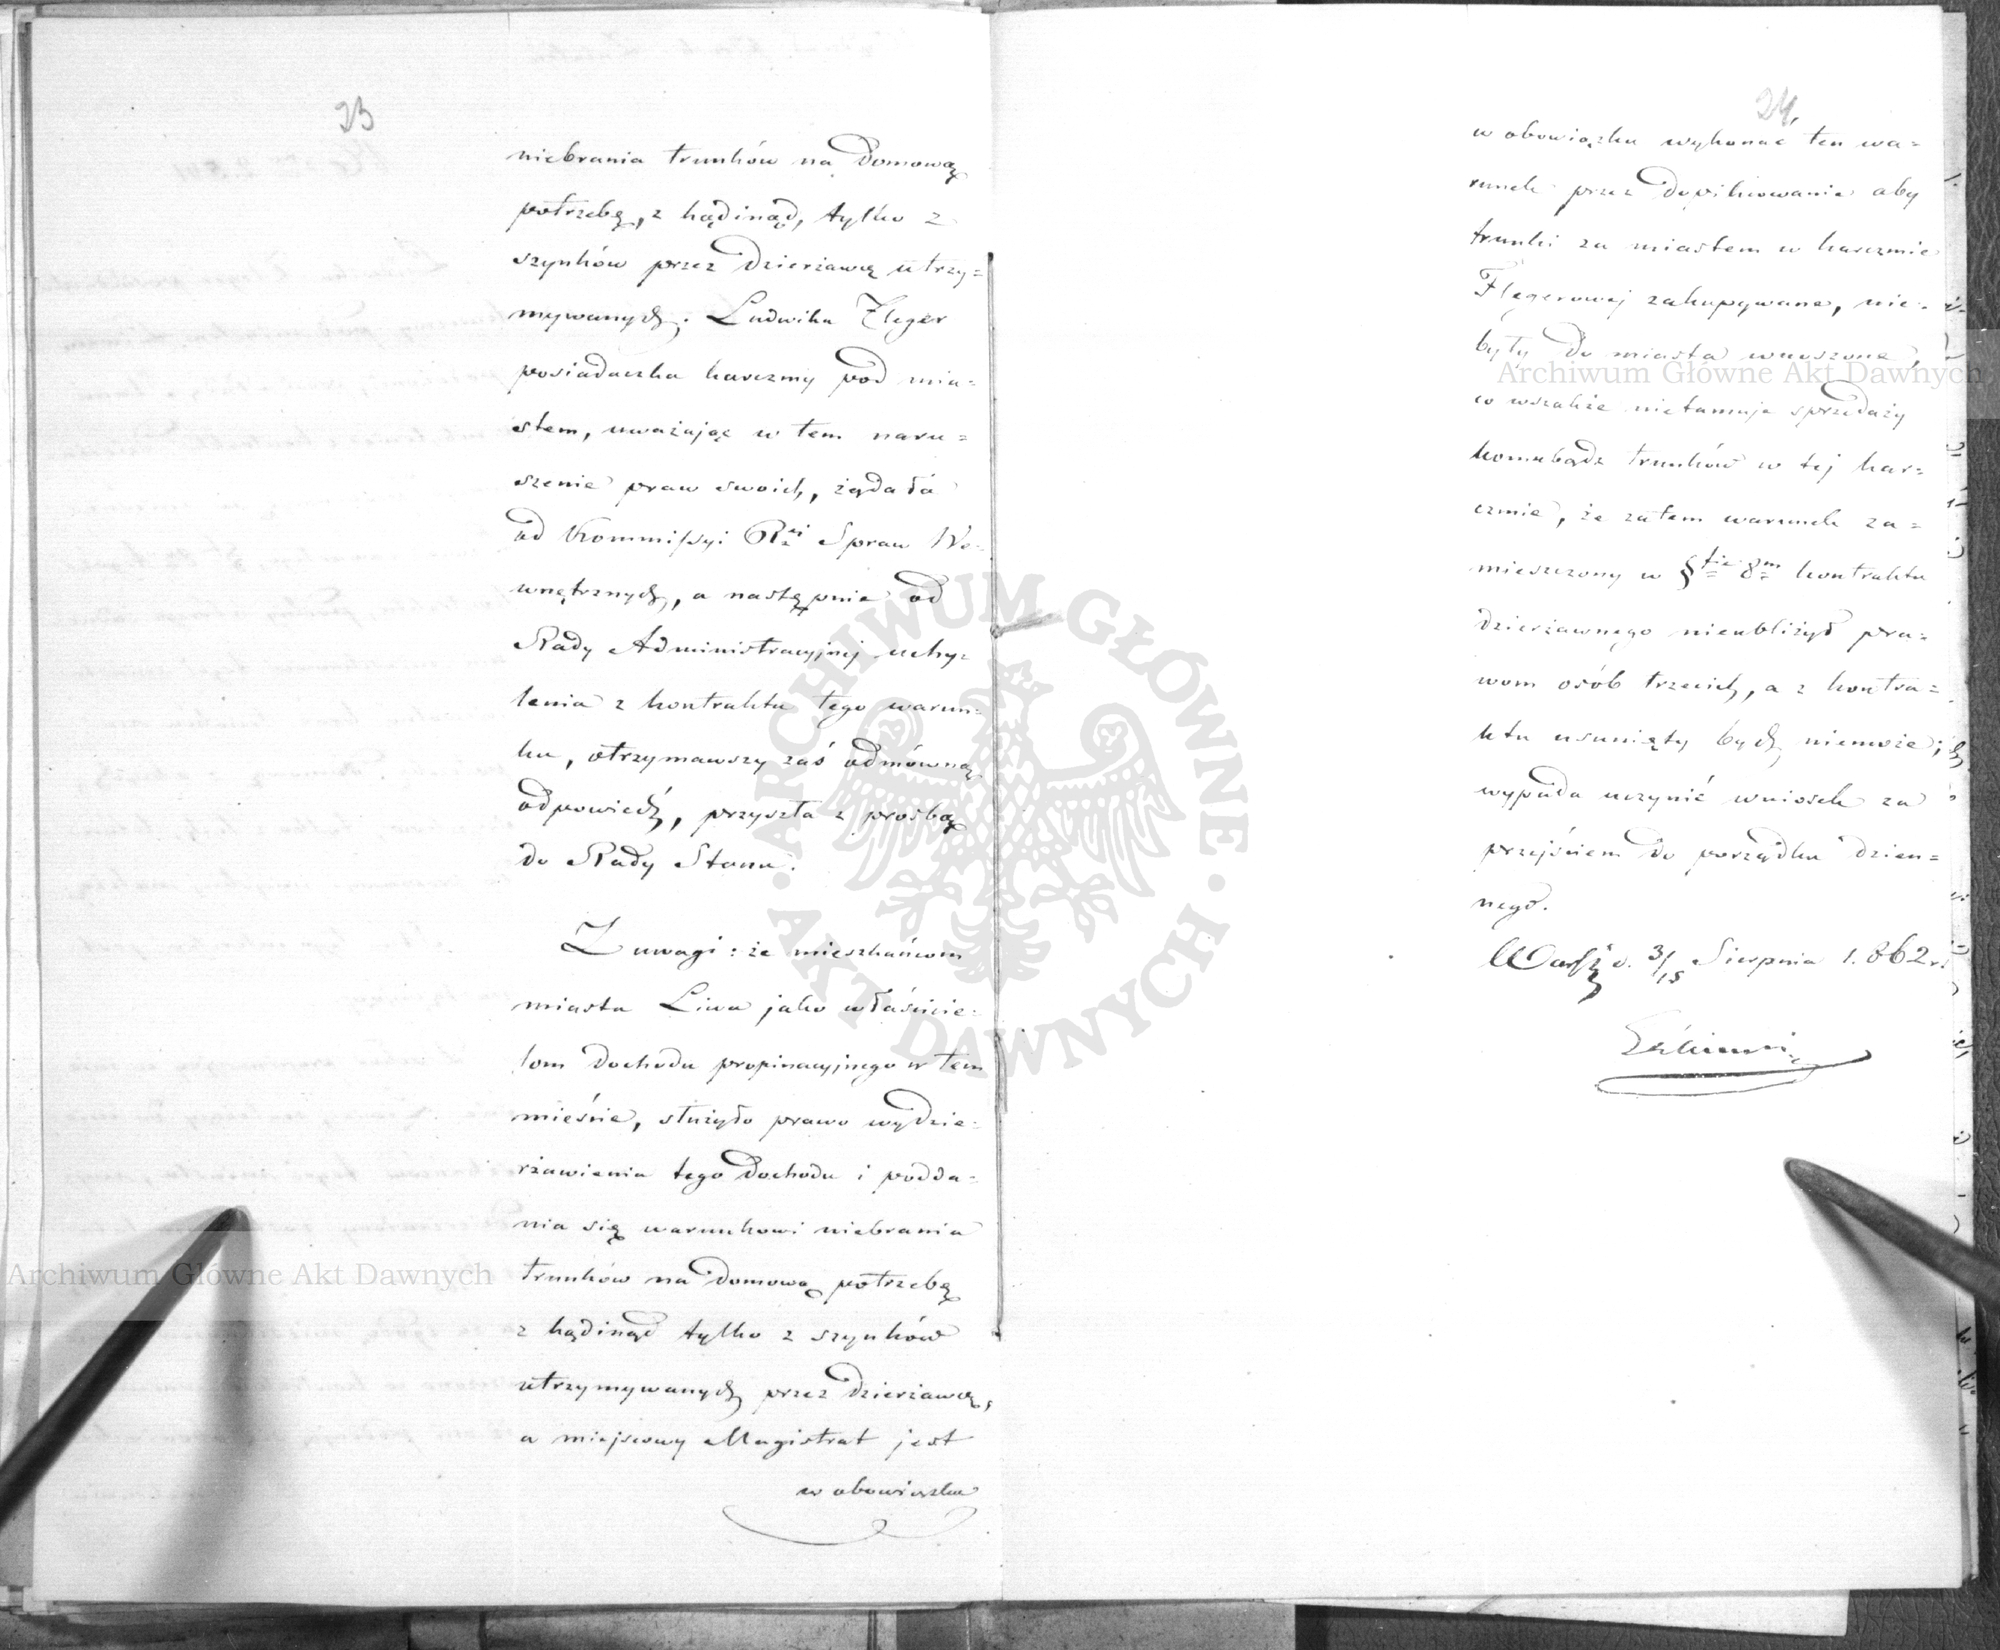 23
niebrania trunków na domową
potrzebę, z kądinąd, tylko z
szynków przez dzierżawcę utrzy=
mywanych. Ludwika Fleger
posiadaczka karczmy pod mia=
stem, uważając w tem naru=
szenie praw swoich, żądała
od Kommissyi Rz. Spraw We=
wnętrznych, a następnie od
Rady Administracyjnej uchy=
lenia z kontraktu tego warun=
ku, otrzymawszy zaś odmówną
odpowiedź, przyszła z prośbą
do Rady Stanu.
Z uwagi: że mieszkańcom
miasta Liwa jako właścicie=
lom dochodu propinacyjnego w tem
mieście, służyło prawo wydzie=
rżawienia tego dochodu i podda=
nia się warunkowi niebrania
trunków na domową potrzebę
z kądinąd tylko z szynków
utrzymywanych przez dzierżawcę,
a miejscowy Magistrat jest
w obowiązku
24.
w obowiązku wykonać ten wa=
runek przez dopilnowanie aby
trunki za miastem w karczmie
Flegerowej zakupywane, nie=
były do miasta wnoszone,
wszakże nietamuje sprzedaży
komubądź trunków w tej kar=
czmie, że zatem warunek za=
mieszczony w §fie 8m kontraktu
dzierżawnego nieubliżył pra=
wom osób trzecich, a z kontra=
ktu usunięty być niemoże;
wypada uczynić wniosek za
przejściem do porządku dzien=
nego.
Warsz. d. 3/15 Sierpnia 1862 r.
Archiwum Główne Akt Dawnych
Archiwum Główne Akt Dawnych
ARCHIWUM GŁÓWNE · AKT DAWNYCH ·